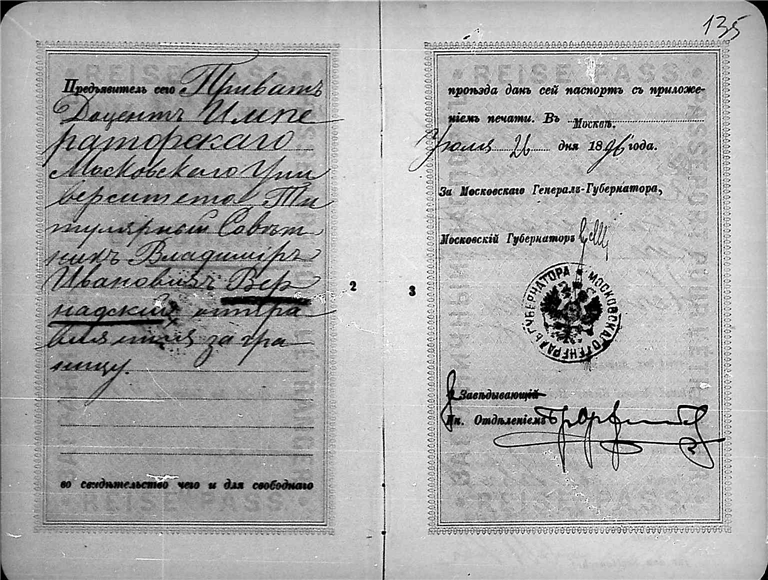 135
REISE-PASS
Предъявитель сего Приватъ
Доцентъ Импе
раторскаго
Московскаго Уни
верситета Ти
тулярный Совѣт
никъ Владиміръ
Ивановичъ Вер
надскій отпра
вляется за гра
ницу.
во свидѣтельство чего и для свободнаго
REISE-PASS
2
REISE-PASS
проѣзда данъ сей паспортъ съ приложе-
ніемъ печати. Въ Москвѣ.
Іюля 26 дня 1896 года.
За Московскаго Генералъ-Губернатора,
Московскій Губернаторъ
МОСКОВСКАГО ГЕНЕРАЛЪ-ГУБЕРНАТОРА
Завѣдывающій
Отдѣленіемъ
REISE-PASS
3